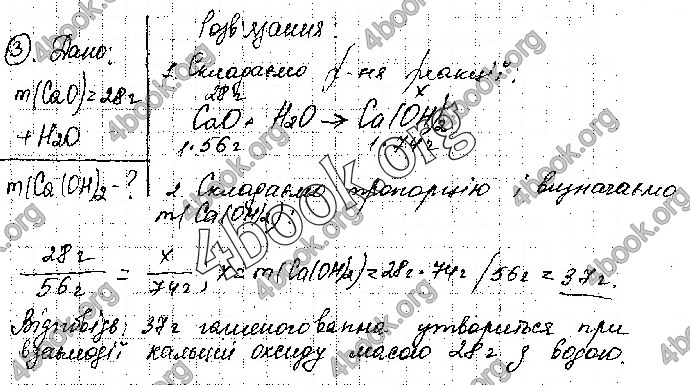 ③. Дано:
m(CaO)=28г
+ H2O
m(Ca(OH)2 - ?
Розв'язання:
1. Складаємо р-ня реакції:
28г x
CaO + H2O → Ca(OH)2
1·56г 1·74г
2. Складаємо пропорцію і визначаємо
m(Ca(OH)2):
28г/56г = x/74г; x = m(Ca(OH)2) = 28г·74г/56г = 37г.
Відповідь: 37г гашеного вапна утвориться при
взаємодії кальцій оксиду масою 28г з водою.
4book.org
4book.org